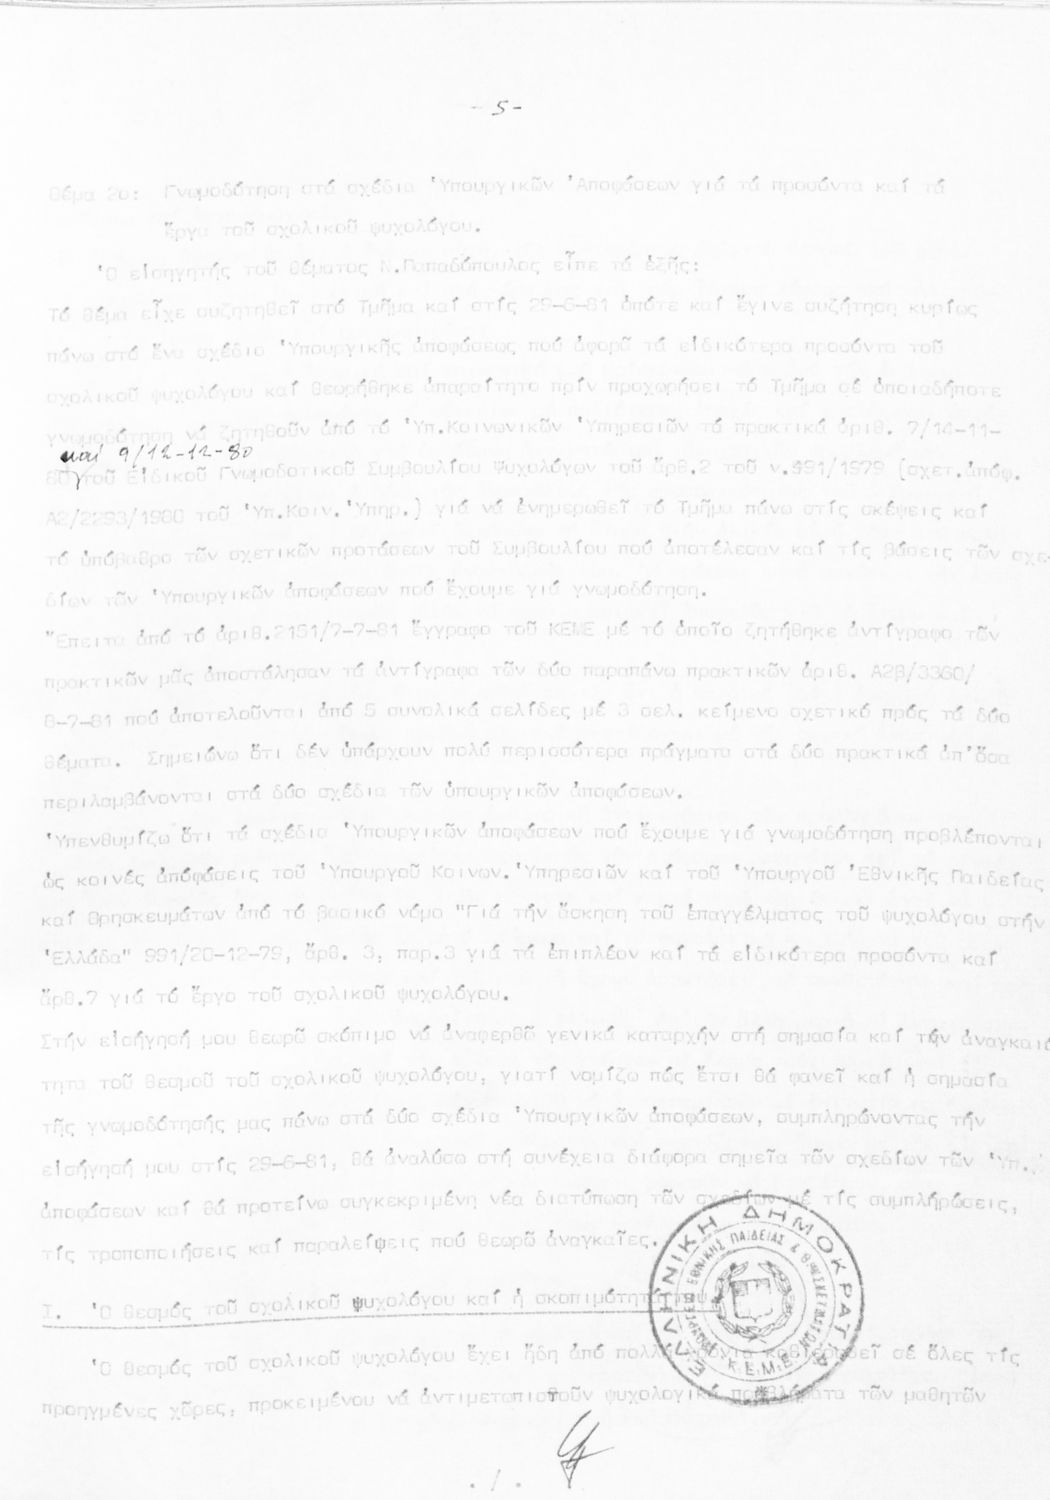 - 5 -
Θέμα 2ο: Γνωμοδότηση στά σχέδια Ὑπουργικῶν Ἀποφάσεων γιά τά προσόντα καί τά
ἔργα τοῦ σχολικοῦ ψυχολόγου.
Ὁ εἰσηγητής τοῦ θέματος Ν.Παπαδόπουλος εἶπε τά ἑξῆς:
Τό θέμα εἶχε συζητηθεῖ στό Τμῆμα καί στίς 29-6-81 ὁπότε καί ἔγινε συζήτηση κυρίως
πάνω στό ἕνα σχέδιο Ὑπουργικῆς ἀποφάσεως πού ἀφορᾶ τά εἰδικότερα προσόντα τοῦ
σχολικοῦ ψυχολόγου καί θεωρήθηκε ἀπαραίτητο πρίν προχωρήσει τό Τμῆμα σέ ὁποιαδήποτε
γνωμοδότηση νά ζητηθοῦν ἀπό τό Ὑπ.Κοινωνικῶν Ὑπηρεσιῶν τά πρακτικά ἀριθ. 7/14-11-
καί 9/12-12-80
80 τοῦ Εἰδικοῦ Γνωμοδοτικοῦ Συμβουλίου Ψυχολόγων τοῦ ἄρθ.2 τοῦ ν.991/1979 (σχετ.ἀπόφ.
Α2/2293/1980 τοῦ Ὑπ.Κοιν.Ὑπηρ.) γιά νά ἐνημερωθεῖ τό Τμῆμα πάνω στίς σκέψεις καί
τό ὑπόβαθρο τῶν σχετικῶν προτάσεων τοῦ Συμβουλίου πού ἀποτέλεσαν καί τίς βάσεις τῶν σχε-
δίων τῶν Ὑπουργικῶν ἀποφάσεων πού ἔχουμε γιά γνωμοδότηση.
Ἔπειτα ἀπό τό ἀριθ.2151/7-7-81 ἔγγραφο τοῦ ΚΕΜΕ μέ τό ὁποῖο ζητήθηκε ἀντίγραφο τῶν
πρακτικῶν μᾶς ἀποστάλησαν τά ἀντίγραφα τῶν δύο παραπάνω πρακτικῶν ἀριθ. Α2β/3360/
8-7-81 πού ἀποτελοῦνται ἀπό 5 συνολικά σελίδες μέ 3 σελ. κείμενο σχετικό πρός τά δύο
θέματα. Σημειώνω ὅτι δέν ὑπάρχουν πολύ περισσότερα πράγματα στά δύο πρακτικά ἀπ'ὅσα
περιλαμβάνονται στά δύο σχέδια τῶν ὑπουργικῶν ἀποφάσεων.
Ὑπενθυμίζω ὅτι τά σχέδια Ὑπουργικῶν ἀποφάσεων πού ἔχουμε γιά γνωμοδότηση προβλέπονται
ὡς κοινές ἀποφάσεις τοῦ Ὑπουργοῦ Κοινων.Ὑπηρεσιῶν καί τοῦ Ὑπουργοῦ Ἐθνικῆς Παιδείας
καί Θρησκευμάτων ἀπό τό βασικό νόμο "Γιά τήν ἄσκηση τοῦ ἐπαγγέλματος τοῦ ψυχολόγου στήν
Ἑλλάδα" 991/20-12-79, ἄρθ. 3, παρ.3 γιά τά ἐπιπλέον καί τά εἰδικότερα προσόντα καί
ἄρθ.7 γιά τό ἔργο τοῦ σχολικοῦ ψυχολόγου.
Στήν εἰσήγησή μου θεωρῶ σκόπιμο νά ἀναφερθῶ γενικά καταρχήν στή σημασία καί τήν ἀναγκαιό
τητα τοῦ θεσμοῦ τοῦ σχολικοῦ ψυχολόγου, γιατί νομίζω πώς ἔτσι θά φανεῖ καί ἡ σημασία
τῆς γνωμοδότησής μας πάνω στά δύο σχέδια Ὑπουργικῶν ἀποφάσεων, συμπληρώνοντας τήν
εἰσήγησή μου στίς 29-6-81, θά ἀναλύσω στή συνέχεια διάφορα σημεῖα τῶν σχεδίων τῶν Ὑπ.
ἀποφάσεων καί θά προτείνω συγκεκριμένη νέα διατύπωση τῶν σχεδίων μέ τίς συμπληρώσεις,
τίς τροποποιήσεις καί παραλείψεις πού θεωρῶ ἀναγκαῖες.
Ι. Ὁ θεσμός τοῦ σχολικοῦ ψυχολόγου καί ἡ σκοπιμότητά του
Ὁ θεσμός τοῦ σχολικοῦ ψυχολόγου ἔχει ἤδη ἀπό πολλά χρόνια καθιερωθεῖ σέ ὅλες τίς
προηγμένες χῶρες, προκειμένου νά ἀντιμετωπισθοῦν ψυχολογικά προβλήματα τῶν μαθητῶν
ΕΛΛΗΝΙΚΗ ΔΗΜΟΚΡΑΤΙΑ
ΥΠΟΥΡΓΕΙΟ ΕΘΝΙΚΗΣ ΠΑΙΔΕΙΑΣ & ΘΡΗΣΚΕΥΜΑΤΩΝ
Κ.Ε.Μ.Ε.
./.